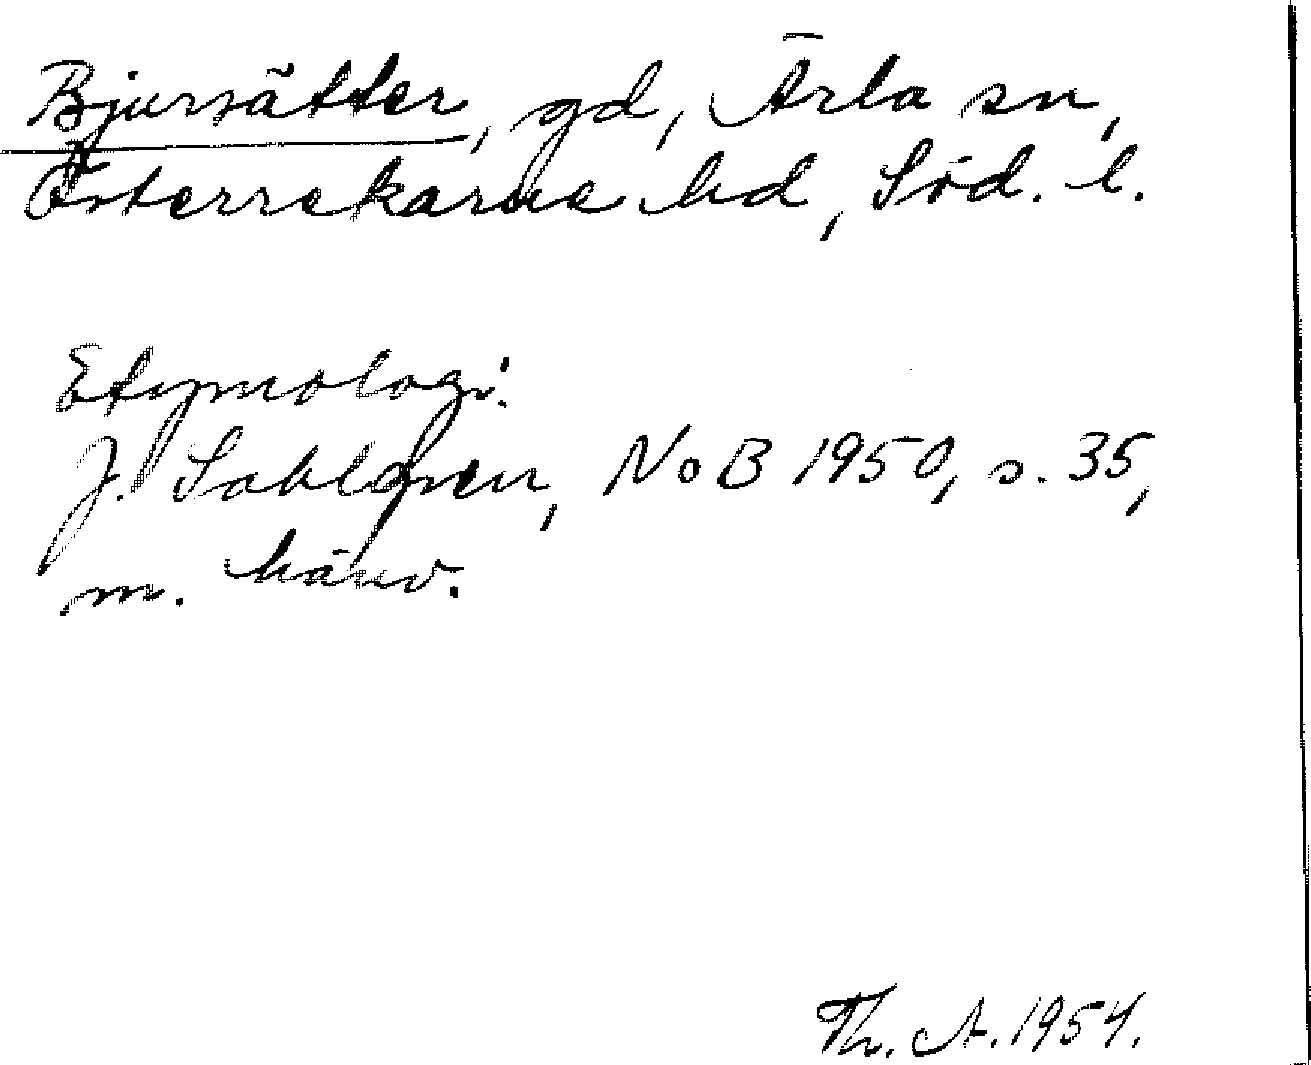 Bjursätter, gd, Ärla sn,
Österrekarne hd, Söd. l.
Etymologi.
J. Sahlgren, NoB 1950, s. 35,
m. hänv.
Th. A. 1954.